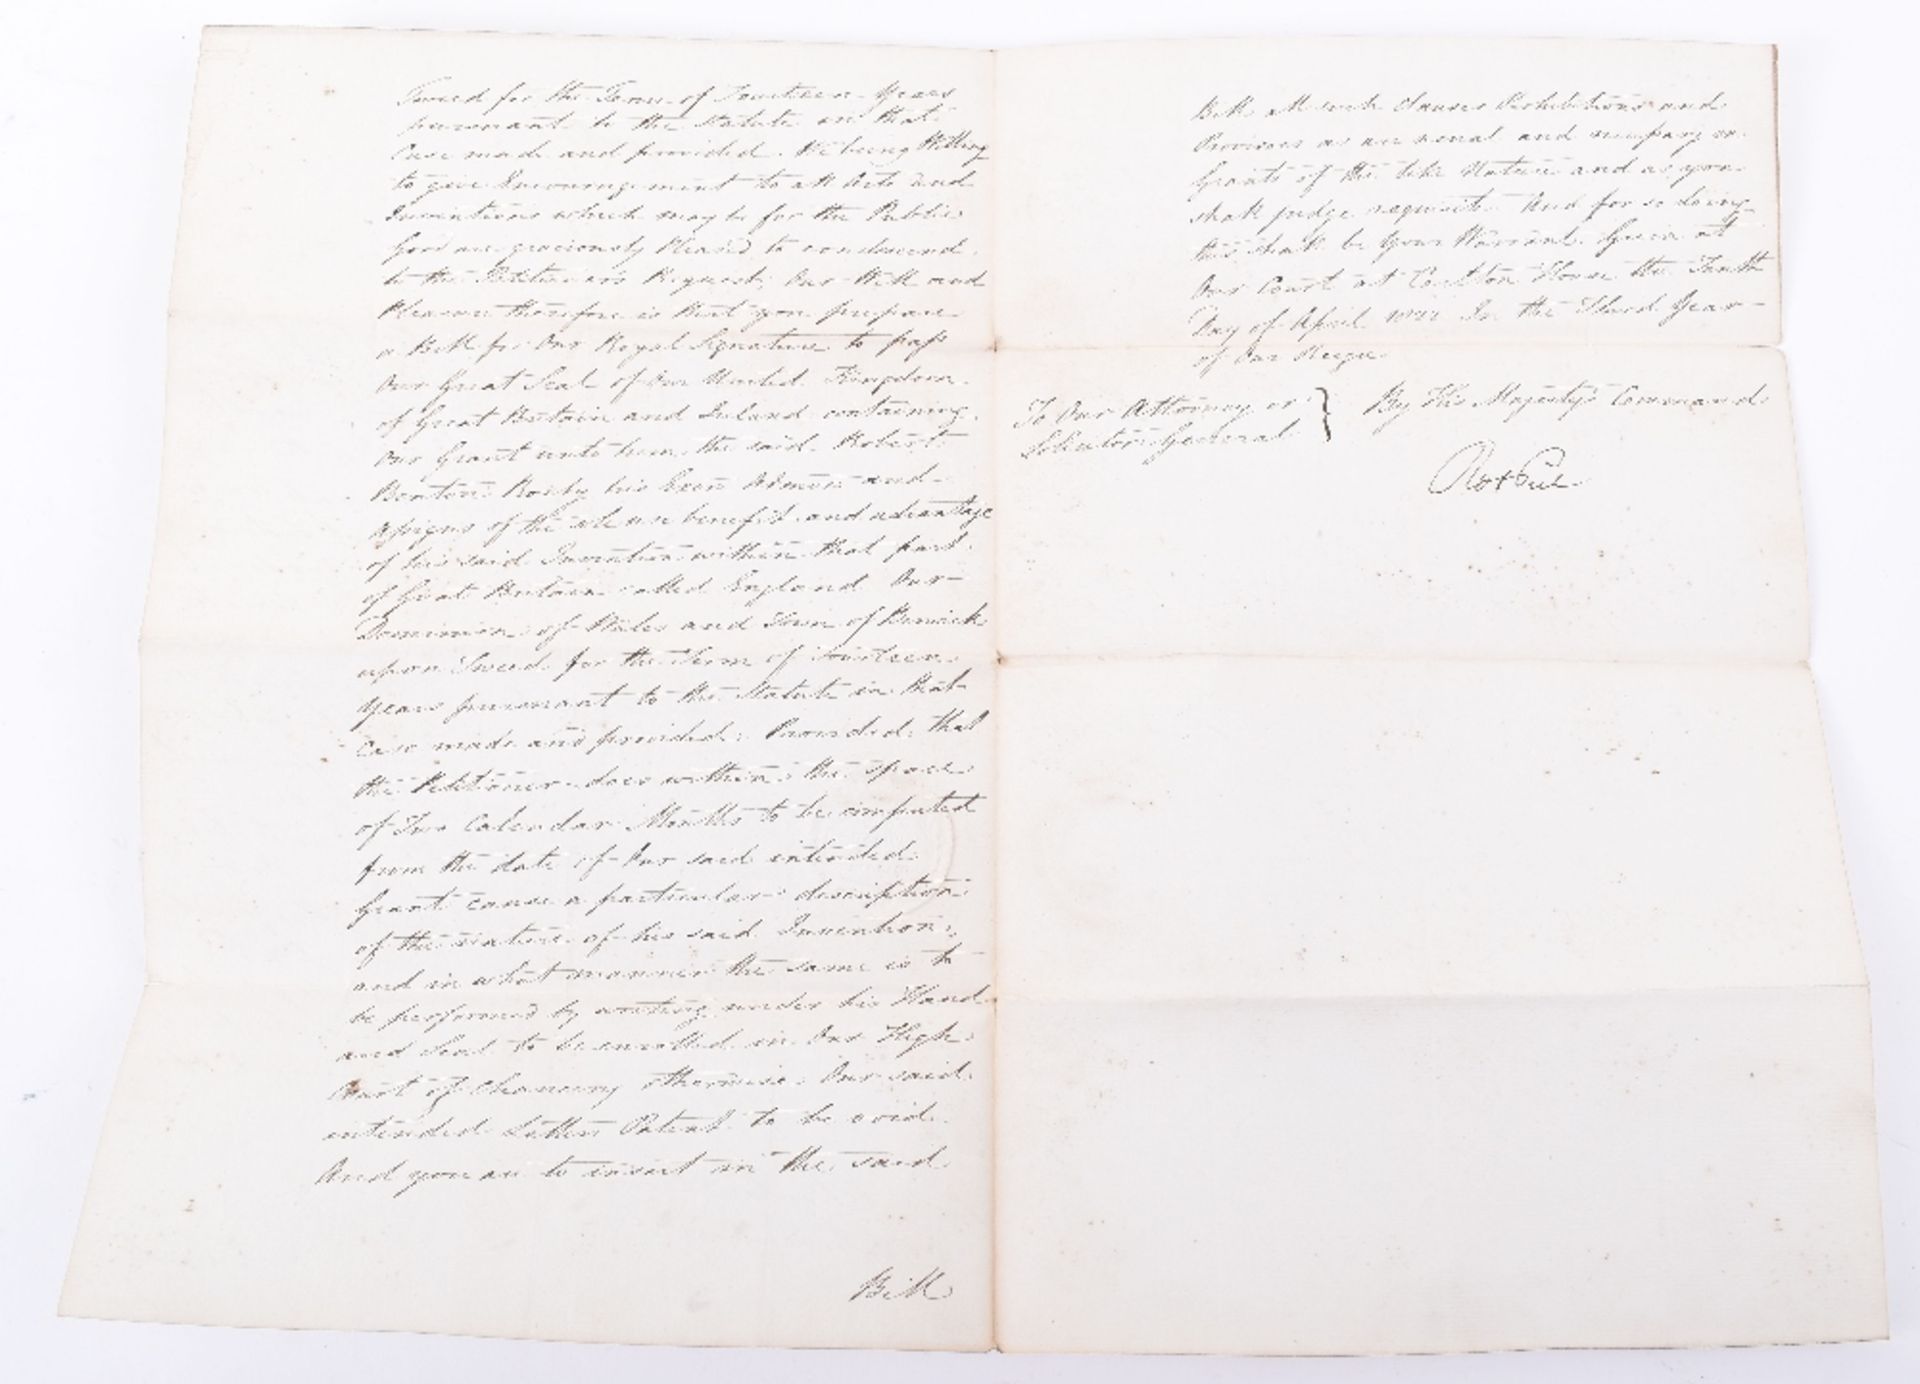 Tweed for the Term of Fourteen Years
pursuant to the Statute in that
Case made and provided. We being Willing
to give Encouragement to all Arts and
Inventions which may be for the Public
Good are graciously Pleased to condescend
to the Petitioner's Request; Our Will and
Pleasure therefore is that you prepare
a Bill for Our Royal Signature to pass
Our Great Seal of Our United Kingdom
of Great Britain and Ireland containing
Our Grant unto him the said Robert
Benton his Exors Admors and
Assigns of the sole use benefit and advantage
of his said Invention within that part
of Great Britain called England Our
Dominion of Wales and Town of Berwick
upon Tweed for the Term of Fourteen
Years pursuant to the Statute in that
Case made and provided: Provided that
the Petitioner does within the space
of Two Calendar Months to be computed
from the date of Our said intended
Grant cause a particular description
of the nature of his said Invention,
and in what manner the same is to
be performed by writing under his Hand
and Seal to be enrolled in Our High
Court of Chancery otherwise Our said
intended Letters Patent to be void.
And you are to insert in the said
Bill
Bill all such Clauses Prohibitions and
Provisoes as are usual and necessary in
Grants of the like Nature and as you
shall judge requisite And for so doing
this shall be Your Warrant. Given at
Our Court at Carlton House the Tenth
Day of April 1822 In the Third Year
of Our Reign
To Our Attorney or }
Solicitor General
By His Majesty's Command
Rob Peel